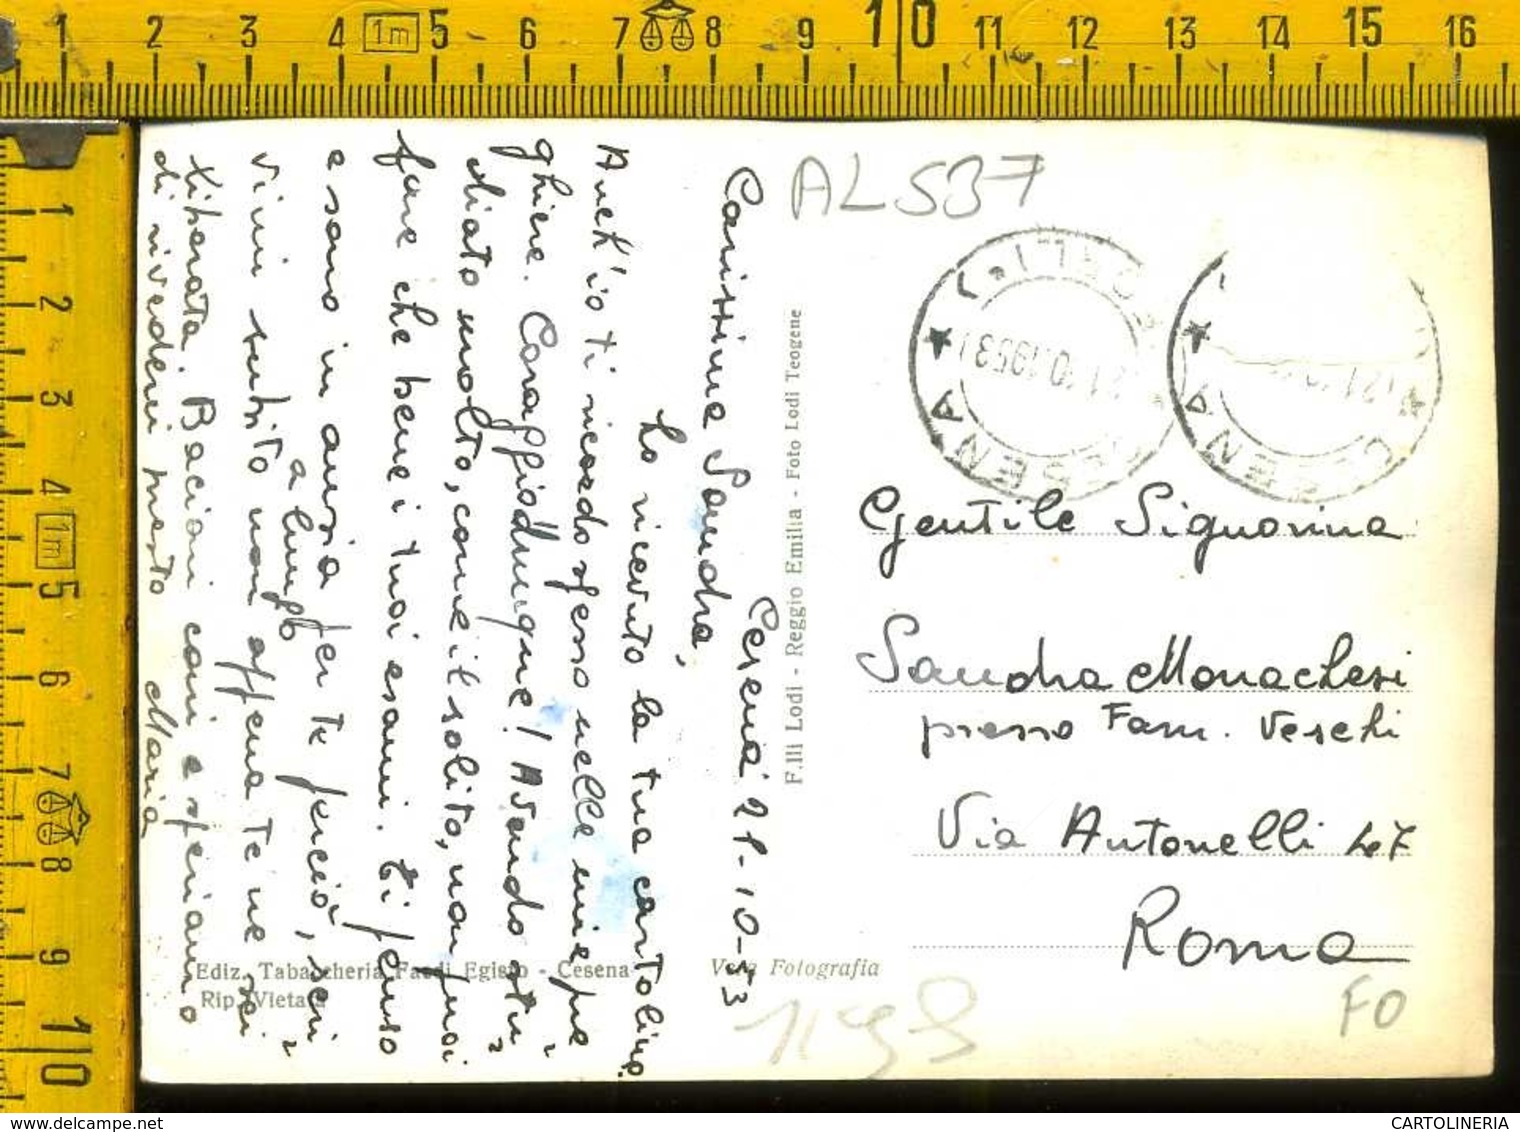 AL 537
Cesena 21-10-53
Carissima Sandra,
ho ricevuto la tua cartolina.
Anch'io ti ricordo spesso nelle mie pre
ghiere. Coraggio dunque! Avendo stu
diato molto, come il solito, non puoi
fare che bene i tuoi esami. Ti penso
e sono in ansia per te perciò, scri
a lungo
vimi subito non appena te ne sei
liberata. Bacioni cari e speriamo
di rivederci presto Maria
F.lli Lodi - Reggio Emilia - Foto Lodi Teogene
Ediz. Tabaccheria Faedi Egisto - Cesena
Rip. Vietata
Vera Fotografia
CESENA
21.10.1953
CESENA
Gentile Signorina
Sandra Monachesi
presso Fam. Veschi
Via Antonelli 47
Roma
FO
1 2 3 4 1m 5 6 7 8 9 10 11 12 13 14 15 16
1 2 3 4 1m 5 6 7 8 9 10
www.delcampe.net
CARTOLINERIA